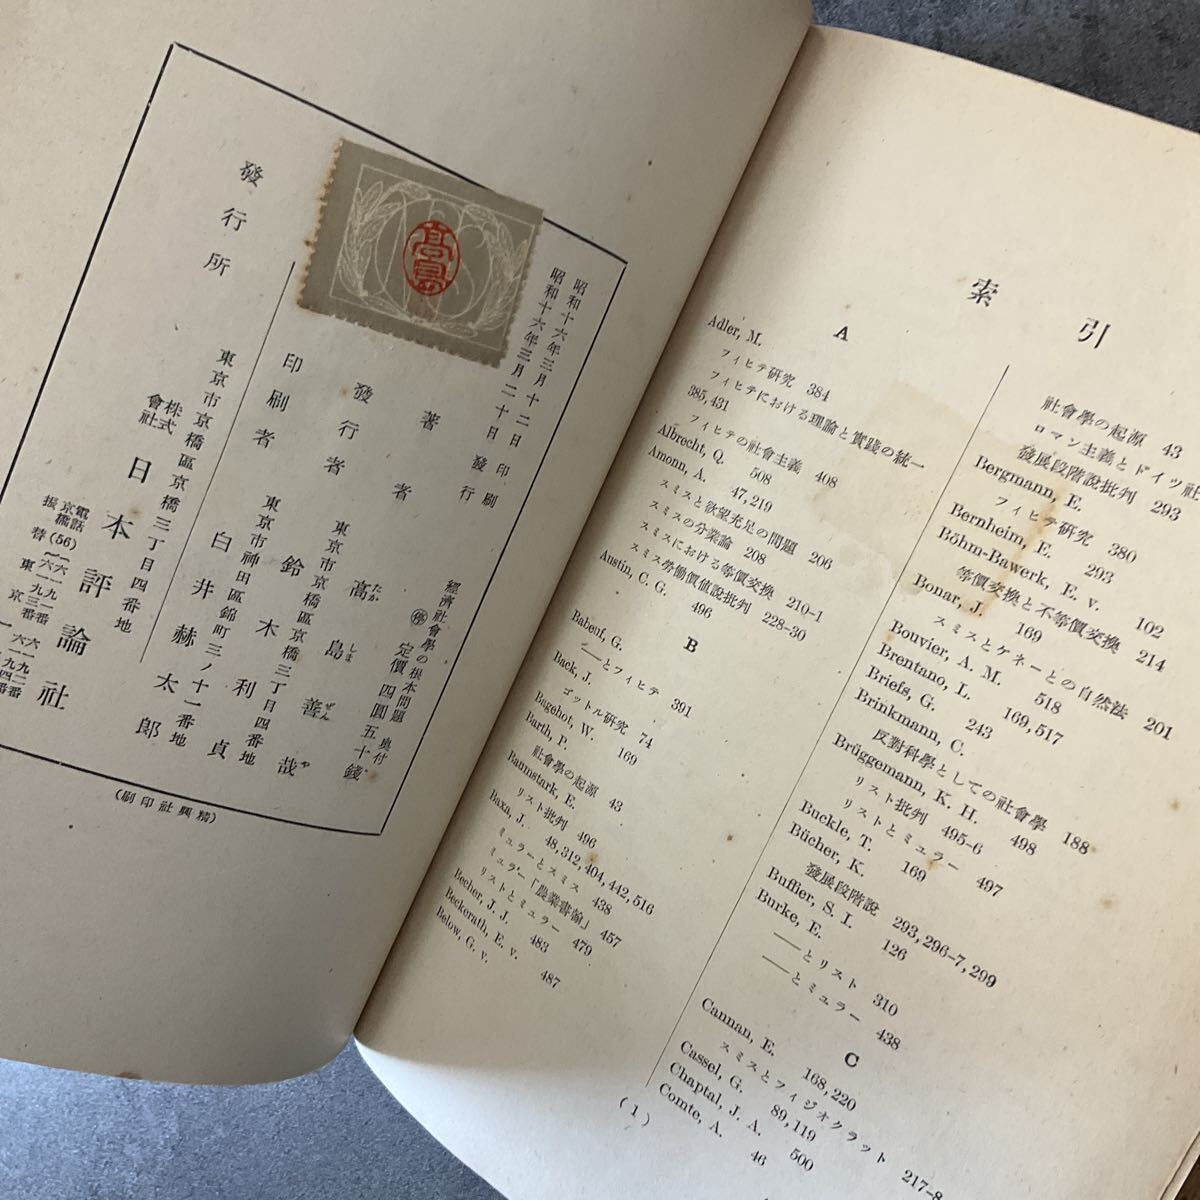 昭和十六年三月十二日 印刷
昭和十六年三月二十日 發行
經濟社會學の根本問題 奥付
㊞ 定價 四圓五十錢
著者 高島善哉
たか しま ぜん や
發行者 東京市京橋區京橋三丁目四番地
鈴木利貞
印刷者 東京市神田區錦町三ノ十一番地
白井赫太郎
發行所
東京市京橋區京橋三丁目四番地
株式會社 日本評論社
電話京橋(56)
振替東京
(精興社印刷)
高島
索引
A
Adler, M.
フィヒテ研究 384
フィヒテにおける理論と實踐の統一
385, 431
フィヒテの社會主義 408
Albrecht, Q. 508
Amonn, A. 47, 219
スミスと欲望充足の問題 206
スミスの分業論 208
スミスにおける等價交換 210-1
スミス勞働價値說批判 228-30
Austin, C. G. 496
B
Babeuf, G.
——とフィヒテ 391
Back, J.
ゴットル研究 74
Bagehot, W. 169
Barth, P.
社會學の起源 43
Baumstark, E.
リスト批判 496
Baxa, J. 48, 312, 404, 442, 516
ミュラーとスミス 438
ミュラー「農業書翰」 457
リストとミュラー 479
Becher, J. J. 483
Beckerath, E. v.
Below, G. v. 487
社會學の起源 43
ロマン主義とドイツ社
發展段階說批判 293
Bergmann, E.
フィヒテ研究 380
Bernheim, E. 293
Böhm-Bawerk, E. v.
等價交換と不等價交換 102
Bonar, J. 169
スミスとケネーとの自然法 201
Bouvier, A. M. 518
Brentano, L. 169, 517
Briefs, G. 243
Brinkmann, C.
反對科學としての社會學 188
Brüggemann, K. H. 498
リスト批判 495-6
リストとミュラー 497
Buckle, T. 169
Bücher, K.
發展段階說 293, 296-7, 299
Buffier, S. I. 126
Burke, E.
——とリスト 310
——とミュラー 438
C
Cannan, E. 168, 220
スミスとフィジオクラット 217-8
Cassel, G. 89, 119
Chaptal, J. A. 500
Comte, A. 46
(1)